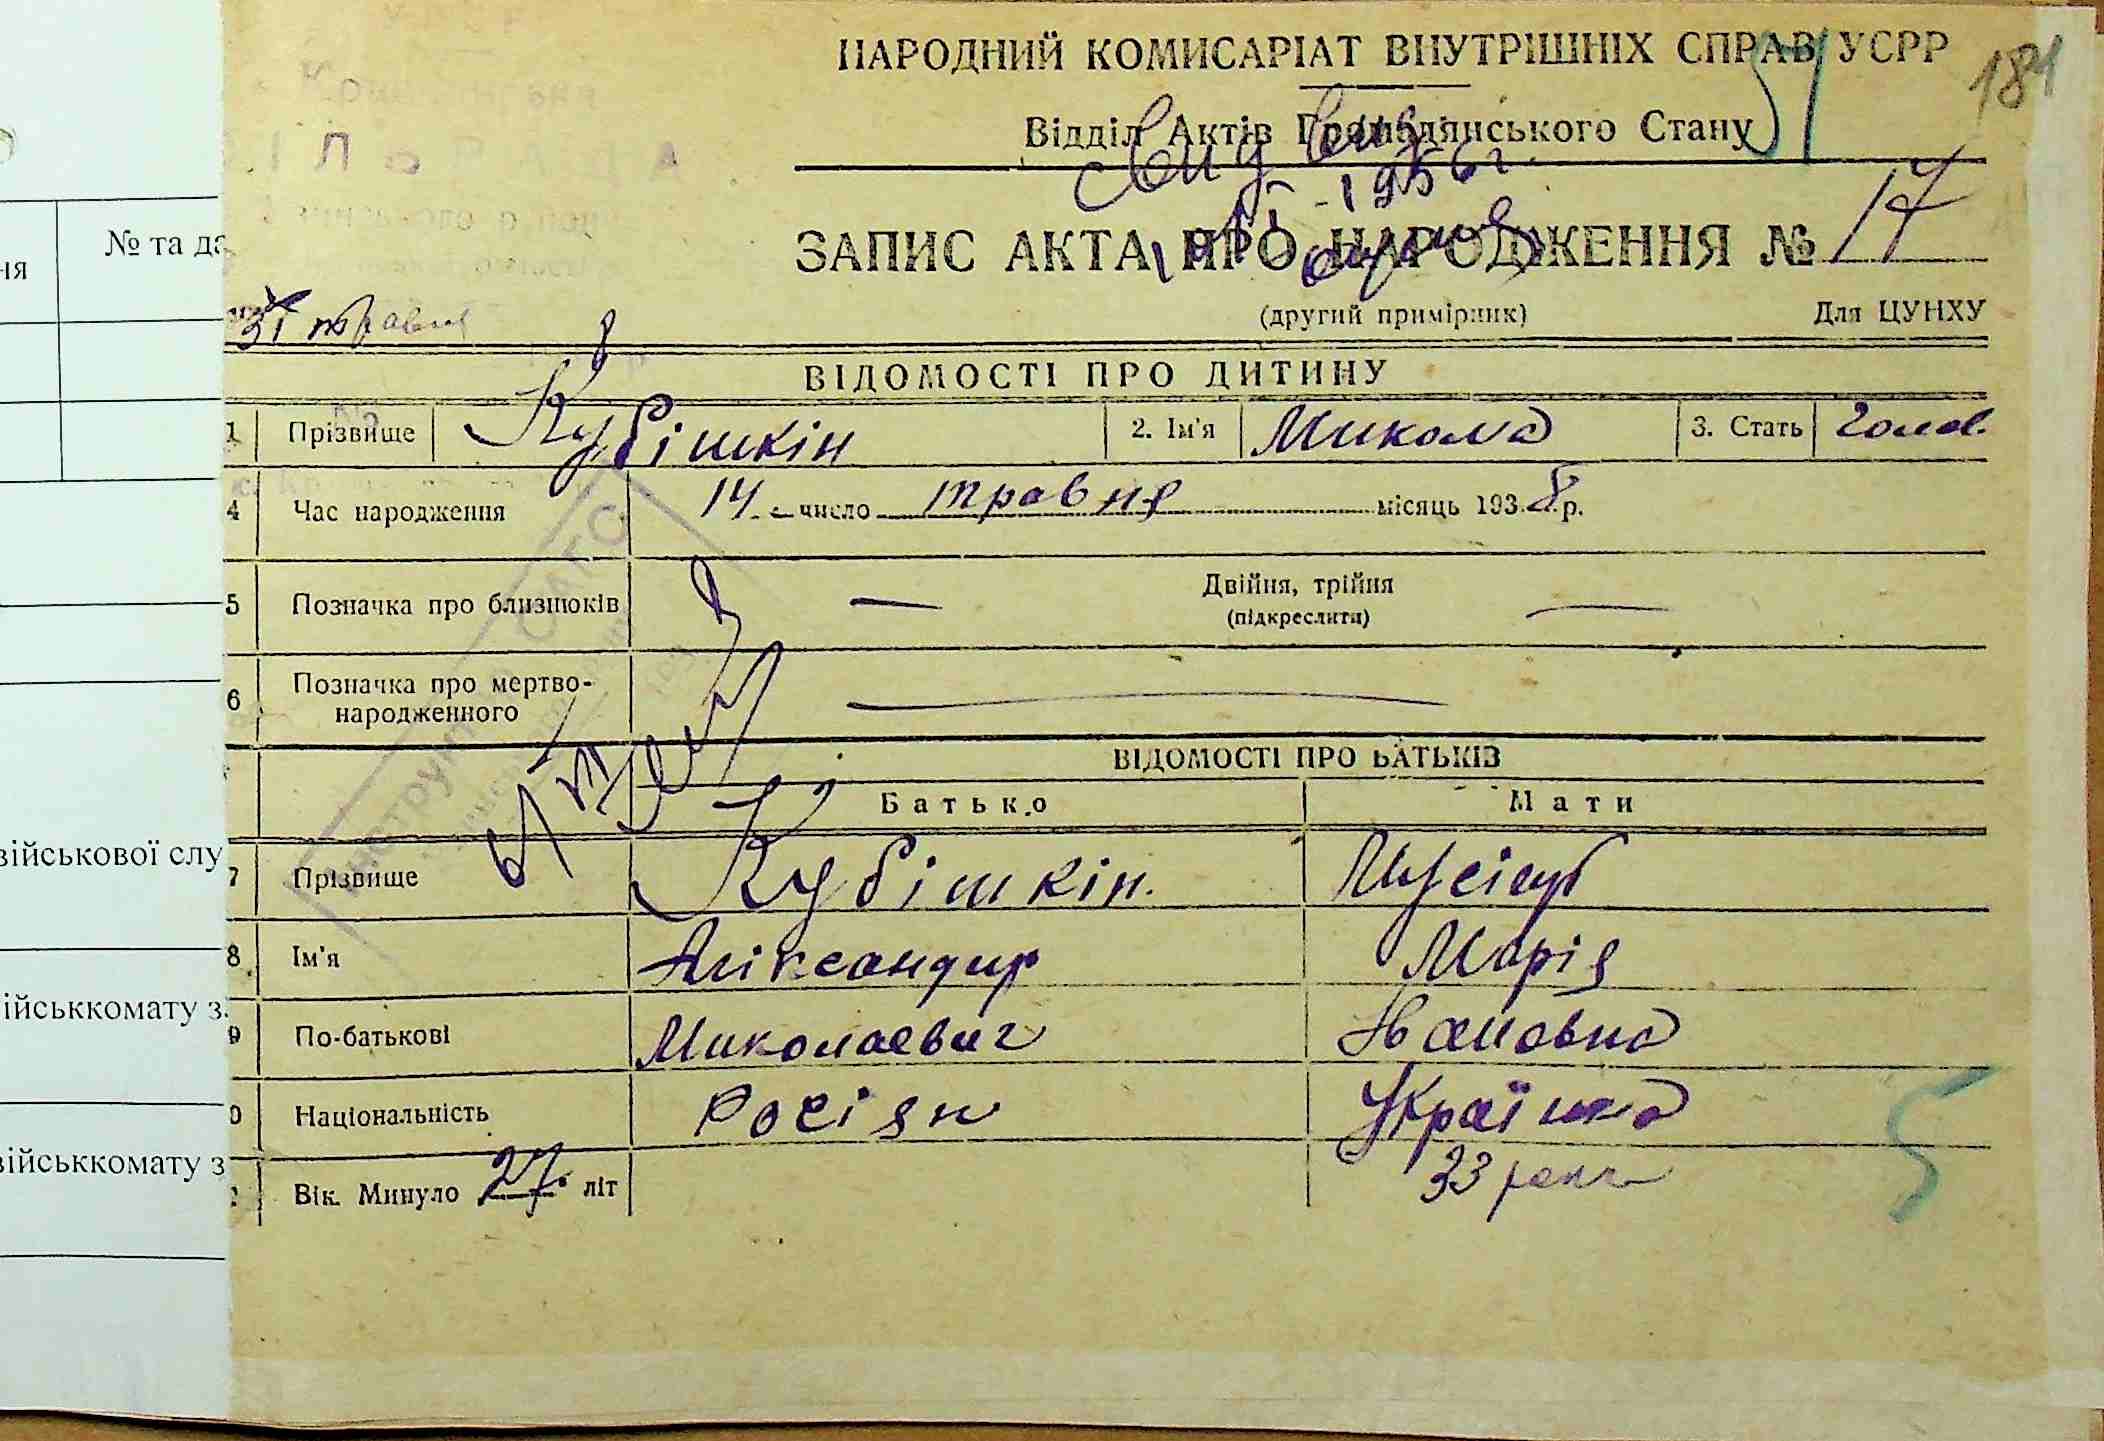 НАРОДНИЙ КОМИСАРІАТ ВНУТРІШНІХ СПРАВ УСРР
51
181
Відділ Актів Громадянського Стану
1956 г.
ЗАПИС АКТА ПРО НАРОДЖЕННЯ № 17
(другий примірник) Для ЦУНХУ
31 травня
ВІДОМОСТІ ПРО ДИТИНУ
1 Прізвище Кубішкін 2. Ім'я Микола 3. Стать голов.
4 Час народження 14 число травня місяць 1938 р.
5 Позначка про близнюків — Двійня, трійня —
(підкреслити)
6 Позначка про мертво-
народженного —
ВІДОМОСТІ ПРО БАТЬКІВ
Батько Мати
7 Прізвище Кубішкін.
8 Ім'я Аліксандир Марія
9 По-батькові Миколаєвич Івановна
0 Національність Росіян Українка
Вік. Минуло 27 літ 33 роки
СІЛЬРАДА
Інструктор
ЗАГС
№ та да
ня
військової слу
ійськкомату з
військкомату з